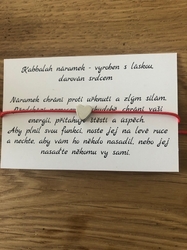 Kabbalah náramek - vyroben s láskou,
darován srdcem
Náramek chrání proti uřknutí a zlým silám.
chrání vaši
energii, přitahuje štěstí a úspěch.
Aby plnil svou funkci, noste jej na levé ruce
a nechte, aby vám ho někdo nasadil, nebo jej
nasaďte někomu vy sami.